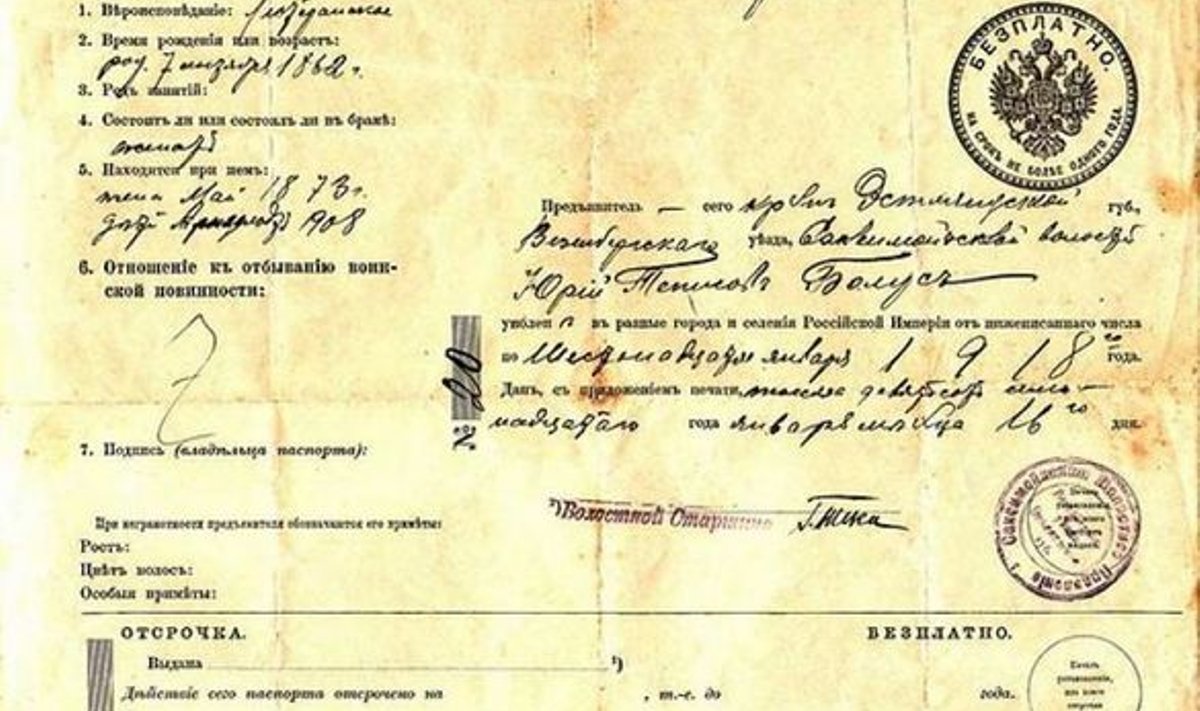 1. Вѣроисповѣданіе:
2. Время рожденія или возрастъ:
род. 7 1862 г.
3. Родъ занятій:
4. Состоитъ ли или состоялъ ли въ бракѣ:
женатъ
5. Находится при немъ:
жена Май 1873 г.
1908
6. Отношеніе къ отбыванію воин-
ской повинности:
7. Подпись (владѣльца паспорта):
При неграмотности предъявителя обозначаются его примѣты:
Ростъ:
Цвѣтъ волосъ:
Особыя примѣты:
БЕЗПЛАТНО.
НА СРОКЪ НЕ БОЛѢЕ ОДНОГО ГОДА.
Предъявитель — сего Эстляндской губ.,
Везенбергскаго уѣзда, волости
Юрій
уволенъ въ разные города и селенія Россійской Имперіи отъ нижеписаннаго числа
по Шестнадцатое января 1918 го года.
№ 20
Данъ, съ приложеніемъ печати, тысяча девятьсотъ семь-
надцатаго года января мѣсяца 16 го дня.
¹) Волостной Старшина
ОТСРОЧКА.
БЕЗПЛАТНО.
Выдана ¹)
Дѣйствіе сего паспорта отсрочено на , т.-е. до года.
Печать
установленія,